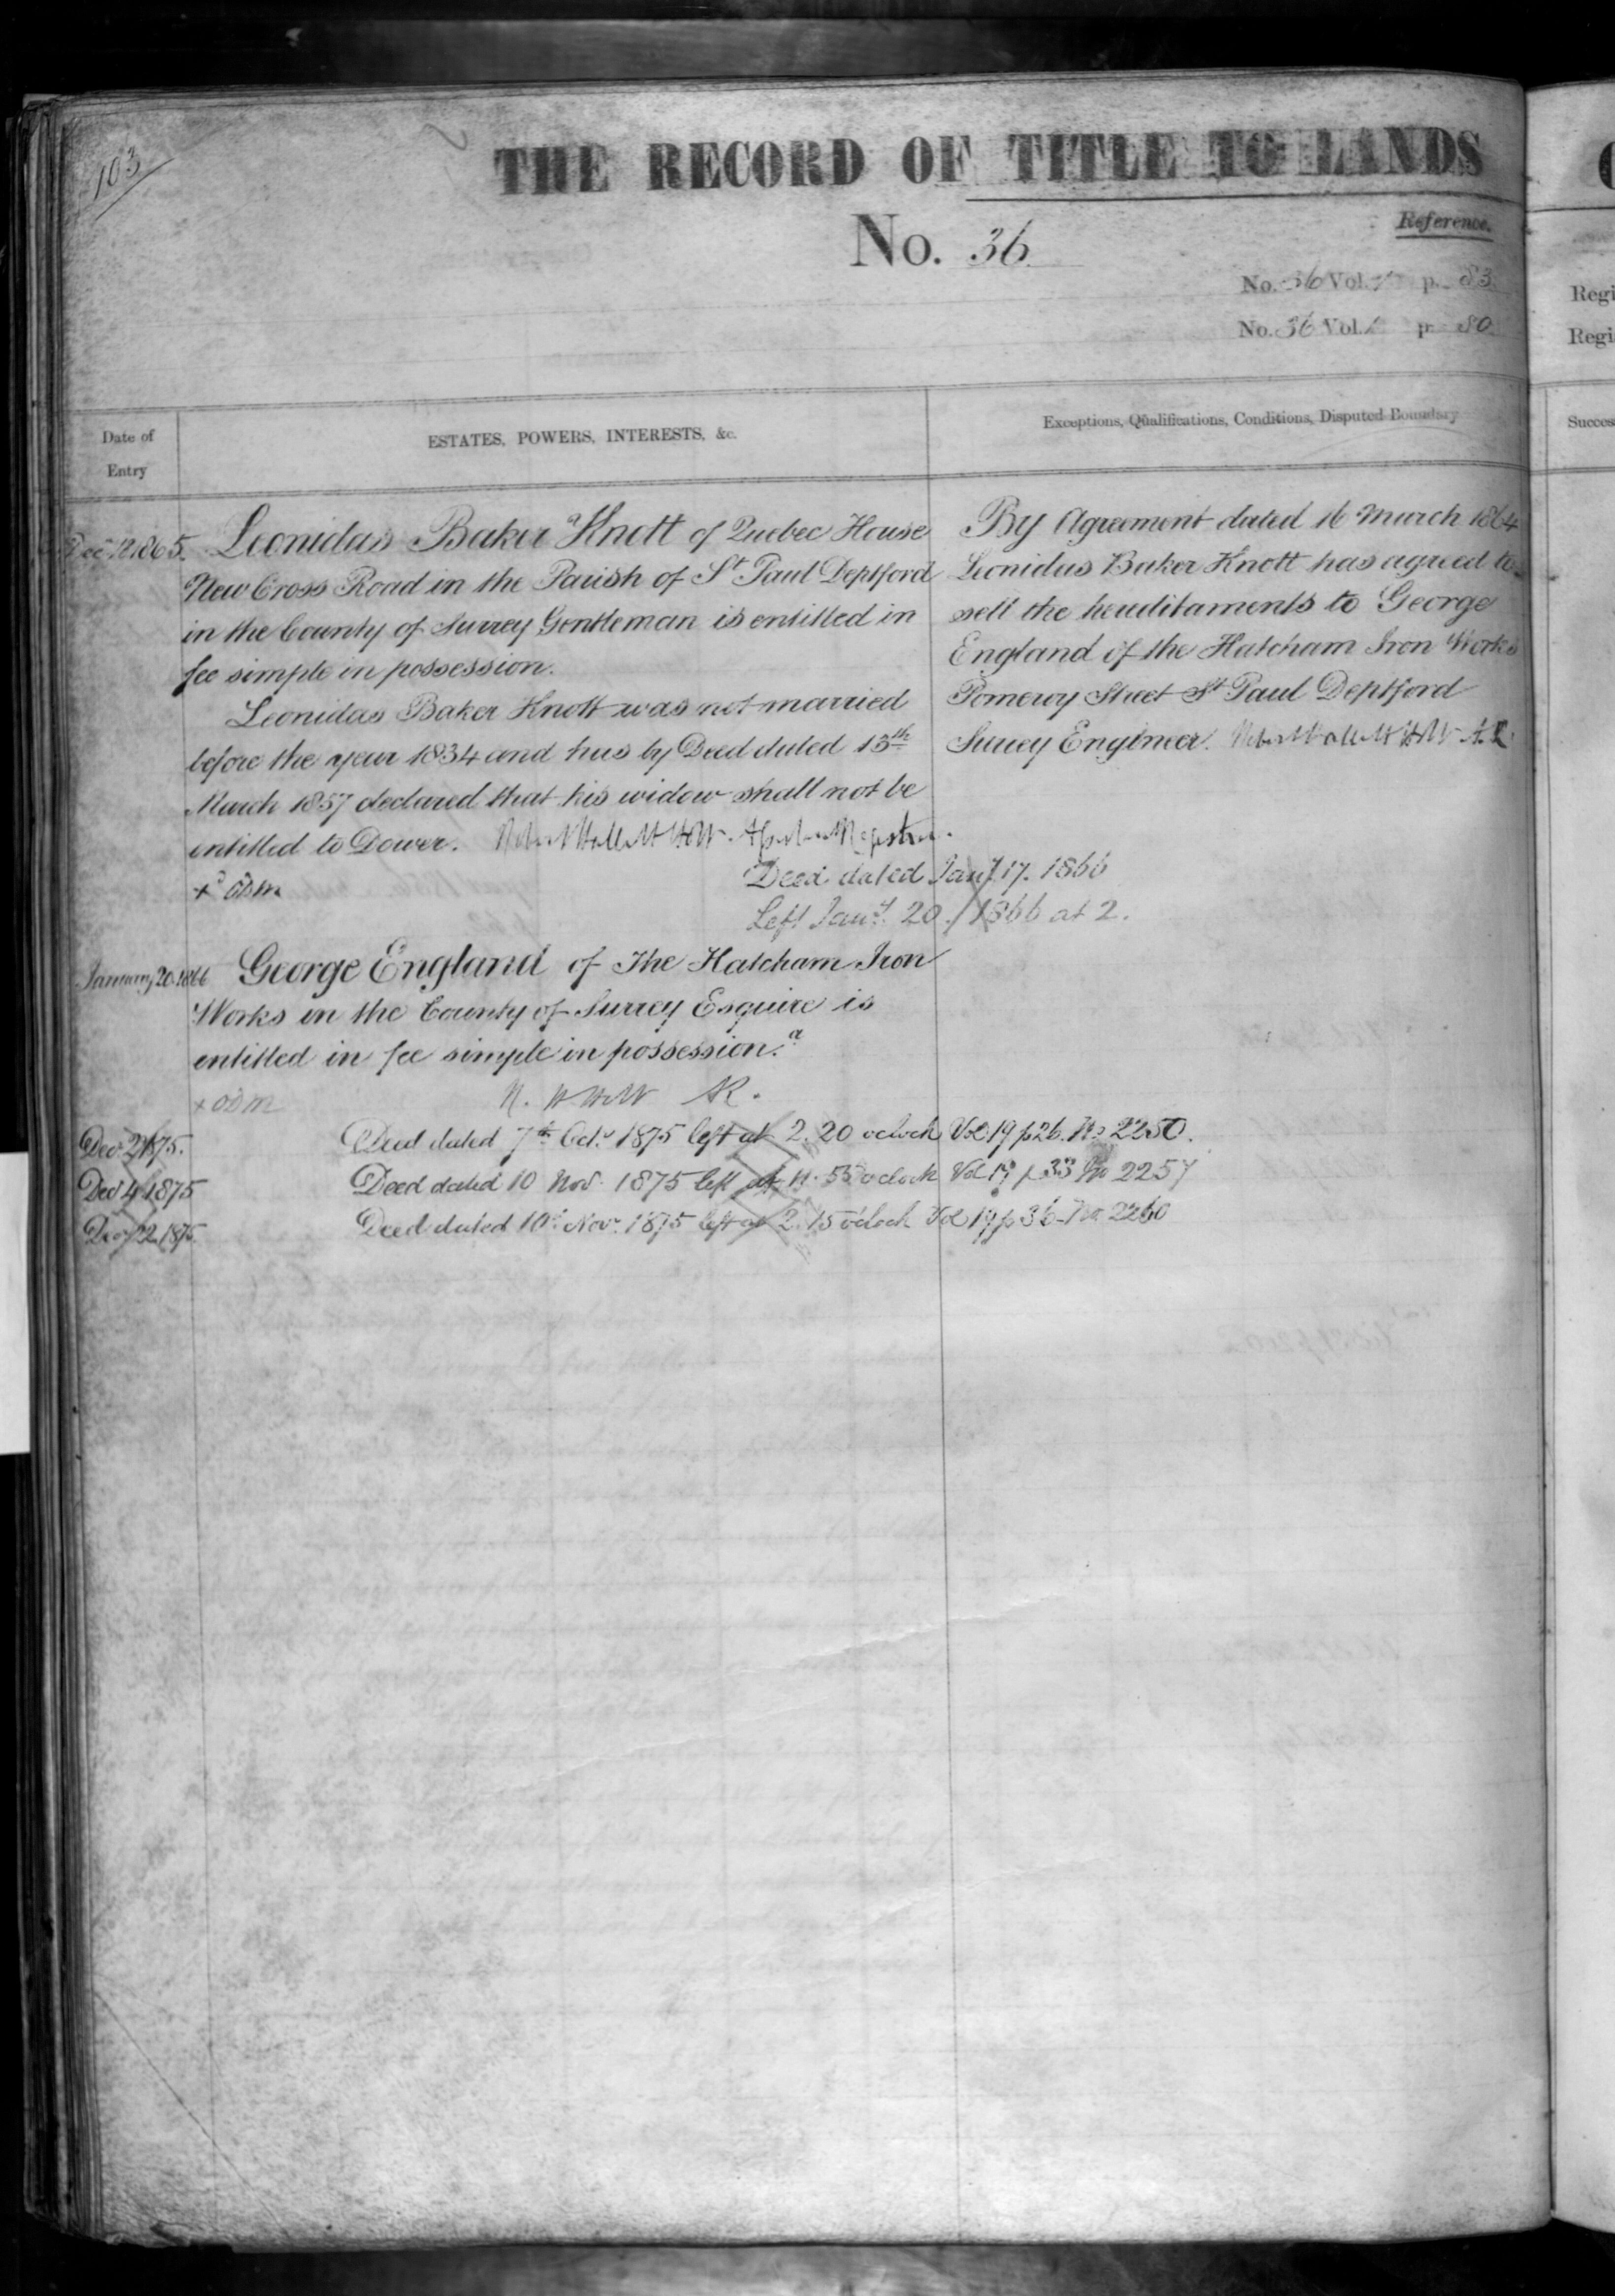 103
THE RECORD OF TITLE TO LANDS
No. 36
Reference.
No. 36 Vol. p. 83
No. 36 Vol. 1 p. 80
Date of Entry
ESTATES, POWERS, INTERESTS, &c.
Exceptions, Qualifications, Conditions, Disputed Boundary
Decr 12 1865. Leonidas Baker Knott of Quebec House
New Cross Road in the Parish of St Paul Deptford
in the County of Surrey Gentleman is entitled in
fee simple in possession.
Leonidas Baker Knott was not married
before the year 1834 and has by Deed dated 13th
March 1857 declared that his widow shall not be
entitled to Dower. Robert Hallett Holt. Assistant Registrar.
By Agreement dated 16 March 1864
Leonidas Baker Knott has agreed to
sell the hereditaments to George
England of the Hatcham Iron Works
Pomeroy Street St Paul Deptford
Surrey Engineer. Robert Hallett Holt A.R.
Deed dated Jany 17. 1866
Left Jany 20. 1866 at 2.
January 20. 1866 George England of The Hatcham Iron
Works in the County of Surrey Esquire is
entitled in fee simple in possession. a
R. H Holt AR.
Decr 2 1875. Deed dated 7th Octr 1875 left at 2.20 oclock Vol 19 p 26. No 2250.
Decr 4 1875 Deed dated 10 Novr 1875 left at 11.55 oclock Vol 19 p 33 No 2257
Decr 22 1875. Deed dated 10th Novr 1875 left at 2.15 oclock Vol 19 p 36 No 2260
Regi
Regi
Succes